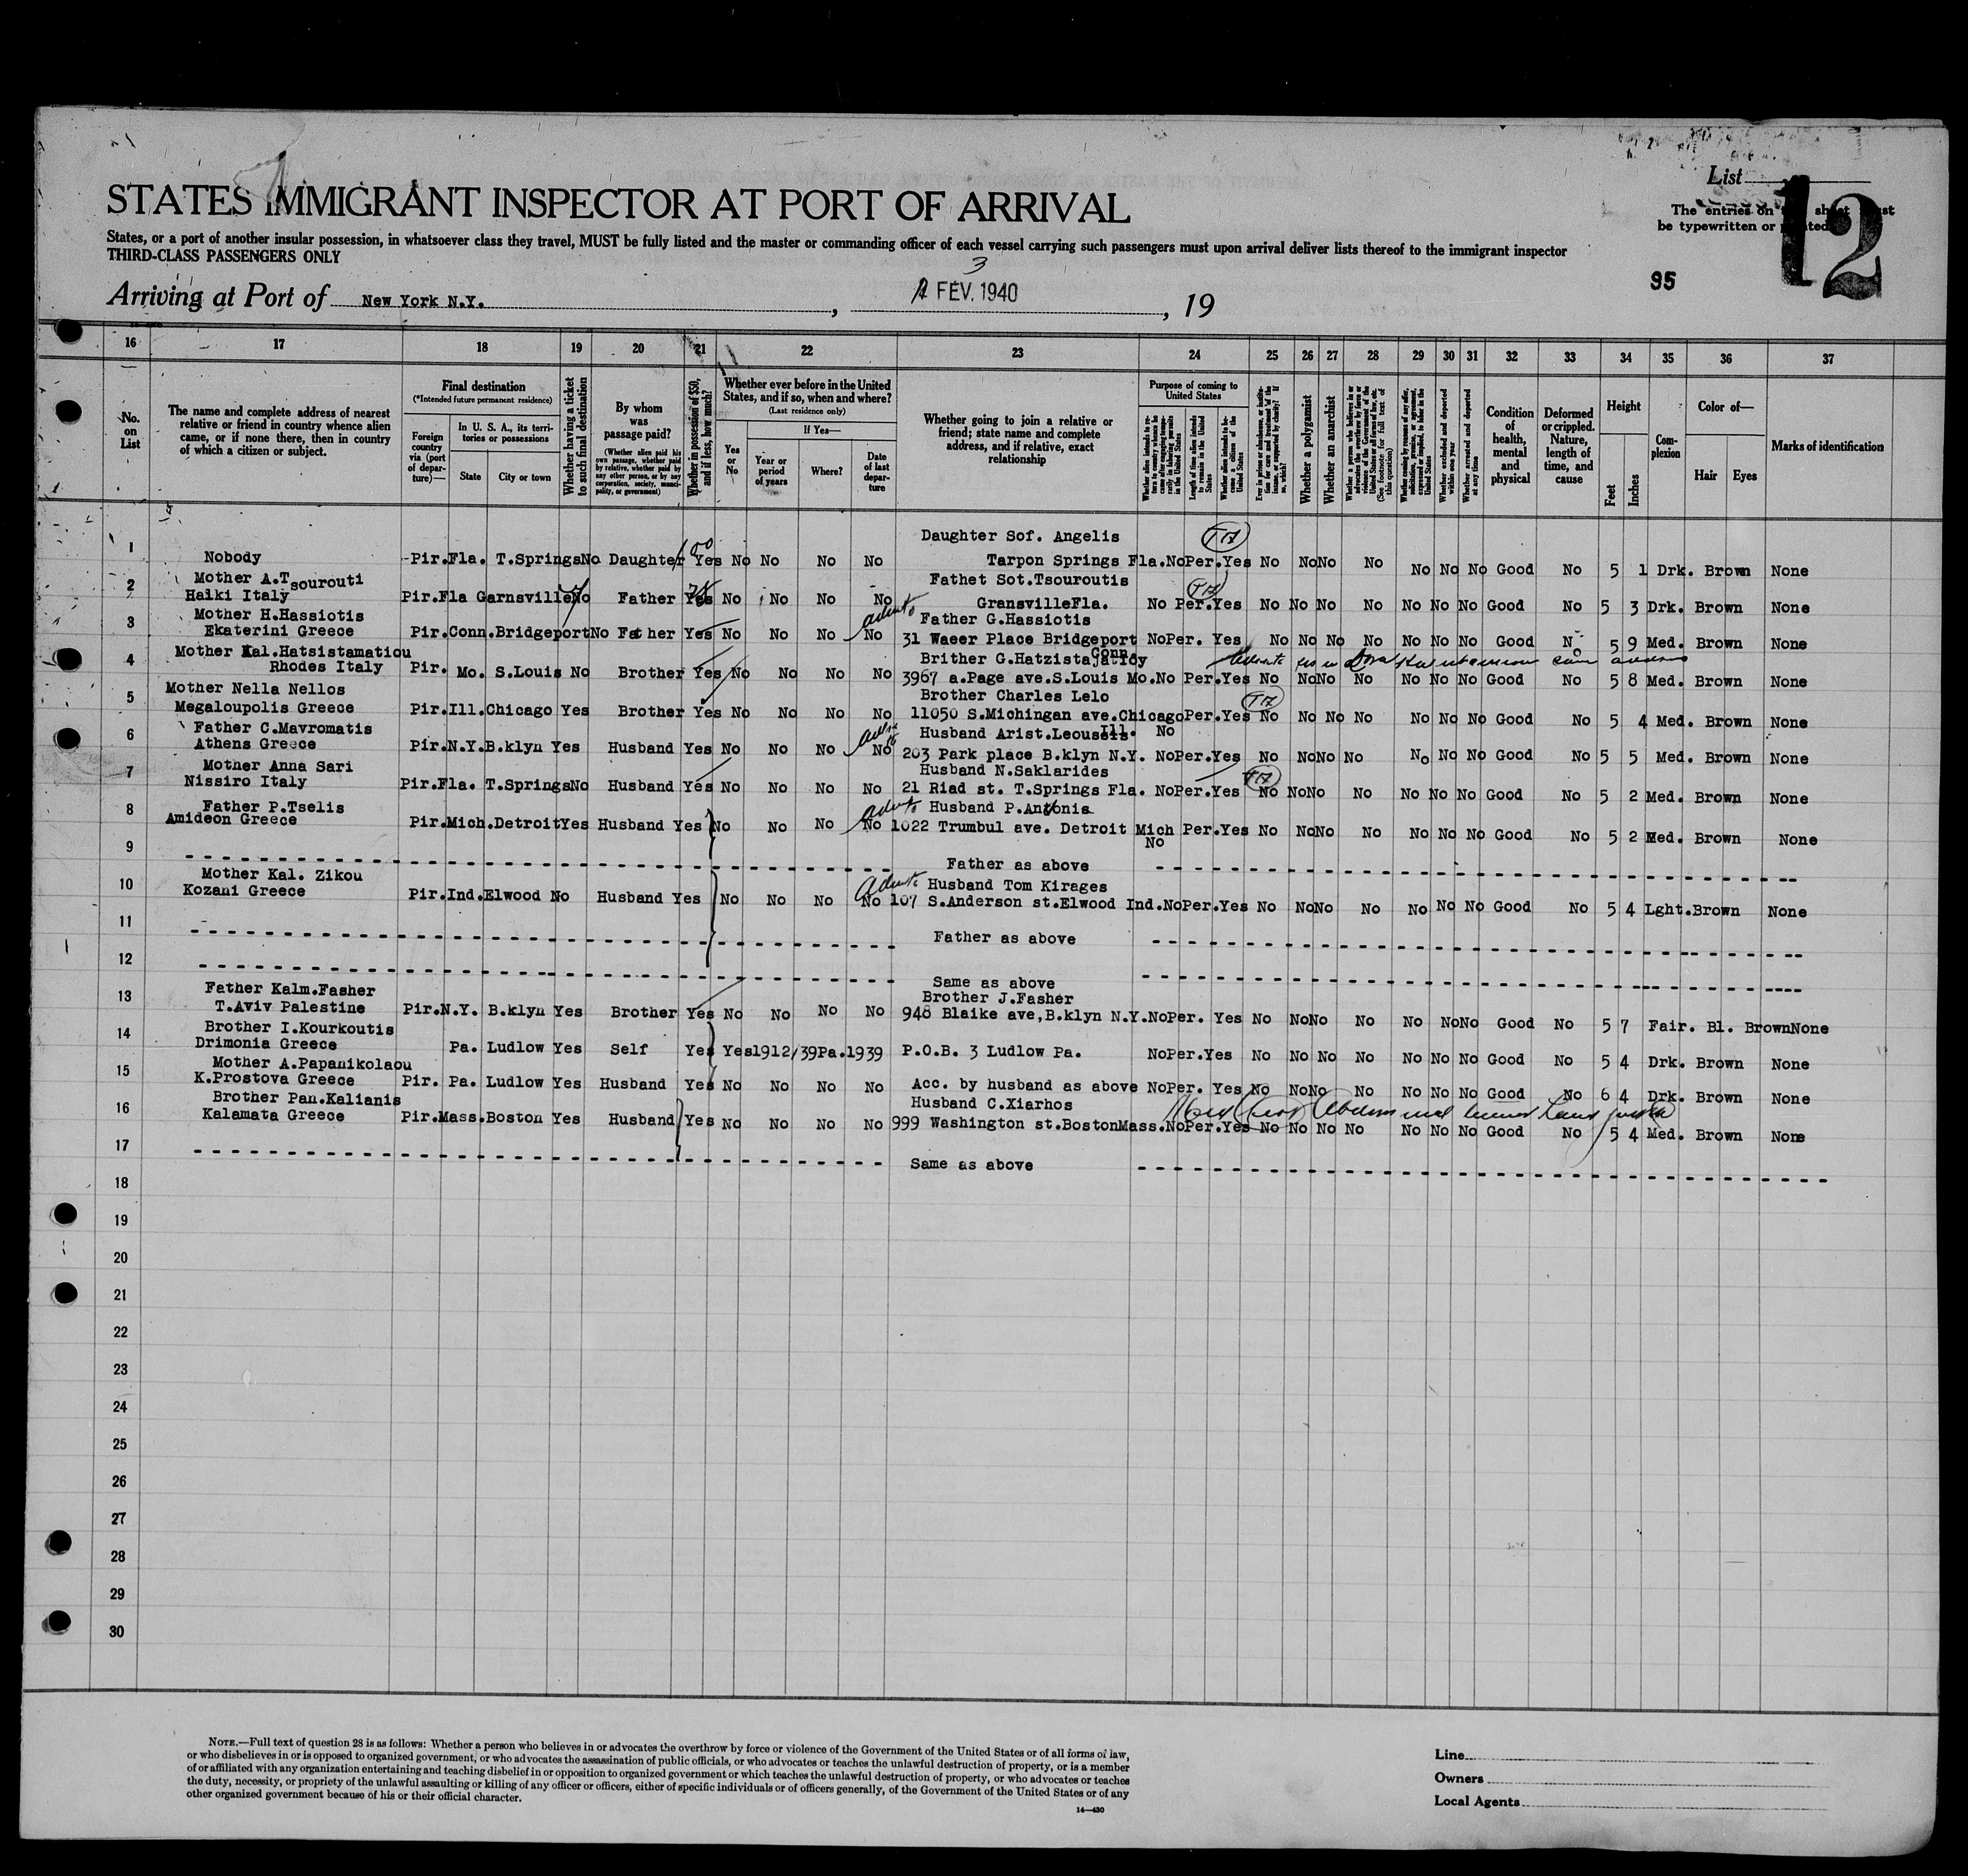 List
12
STATES IMMIGRANT INSPECTOR AT PORT OF ARRIVAL
The entries on sheet
be typewritten or
States, or a port of another insular possession, in whatsoever class they travel, MUST be fully listed and the master or commanding officer of each vessel carrying such passengers must upon arrival deliver lists thereof to the immigrant inspector
THIRD-CLASS PASSENGERS ONLY
95
Arriving at Port of New York N.Y. , 3 FEV. 1940 , 19
16 17 18 19 20 21 22 23 24 25 26 27 28 29 30 31 32 33 34 35 36 37
No. on List
The name and complete address of nearest
relative or friend in country whence alien
came, or if none there, then in country
of which a citizen or subject.
Final destination
(*Intended future permanent residence)
Foreign country via (port of departure)—
In U. S. A., its territories or possessions
State
City or town
Whether having a ticket to such final destination
By whom was passage paid?
(Whether alien paid his own passage, whether paid by relative, whether paid by any other person, or by any corporation, society, municipality, or government)
Whether in possession of $50, and if less, how much?
Whether ever before in the United States, and if so, when and where?
(Last residence only)
Yes or No
If Yes—
Year or period of years
Where?
Date of last departure
Whether going to join a relative or friend; state name and complete address, and if relative, exact relationship
Purpose of coming to United States
Whether a polygamist
Whether an anarchist
Condition of health, mental and physical
Deformed or crippled. Nature, length of time, and cause
Height
Feet
Inches
Complexion
Color of—
Hair
Eyes
Marks of identification
Daughter Sof. Angelis
1 Nobody -Pir.Fla. T.Springs No Daughter 100 Yes No No No No Tarpon Springs Fla.NoPer.Yes No NoNo No No No No Good No 5 1 Drk. Brown None
2 Mother A.Tsourouti Fathet Sot.Tsouroutis
Halki Italy Pir.Fla Garnsville No Father Yes No No No No GransvilleFla. No Per.Yes No No No No No No No Good No 5 3 Drk. Brown None
3 Mother H.Hassiotis Father G.Hassiotis
Ekaterini Greece Pir.Conn.Bridgeport No Father Yes No No No No 31 Waeer Place Bridgeport Conn. NoPer. Yes No No No No No No No Good No 5 9 Med. Brown None
4 Mother Kal.Hatsistamatiou Brither G.Hatzista
Rhodes Italy Pir. Mo. S.Louis No Brother Yes No No No No 3967 a.Page ave.S.Louis Mo.No Per.Yes No NoNo No No No No Good No 5 8 Med. Brown None
5 Mother Nella Nellos Brother Charles Lelo
Megaloupolis Greece Pir.Ill.Chicago Yes Brother Yes No No No No 11050 S.Michingan ave.Chicago Ill. No Per.Yes No No No No No No No Good No 5 4 Med. Brown None
6 Father C.Mavromatis Husband Arist.Leoussis
Athens Greece Pir.N.Y.B.klyn Yes Husband Yes No No No No 203 Park place B.klyn N.Y. NoPer.Yes No NoNo No No No No Good No 5 5 Med. Brown None
7 Mother Anna Sari Husband N.Saklarides
Nissiro Italy Pir.Fla. T.Springs No Husband Yes No No No No 21 Riad st. T.Springs Fla. NoPer.Yes No NoNo No No No No Good No 5 2 Med. Brown None
8 Father P.Tselis Husband P.Antonis
Amideon Greece Pir.Mich.Detroit Yes Husband Yes No No No No 1022 Trumbul ave. Detroit Mich No Per.Yes No NoNo No No No No Good No 5 2 Med. Brown None
9 Father as above
10 Mother Kal. Zikou Husband Tom Kirages
Kozani Greece Pir.Ind.Elwood No Husband Yes No No No No 107 S.Anderson st.Elwood Ind.NoPer.Yes No NoNo No No No No Good No 5 4 Lght.Brown None
11 Father as above
12 Same as above
13 Father Kalm.Fasher Brother J.Fasher
T.Aviv Palestine Pir.N.Y. B.klyn Yes Brother Yes No No No No 948 Blaike ave,B.klyn N.Y.NoPer. Yes No NoNo No No NoNo Good No 5 7 Fair. Bl. Brown None
14 Brother I.Kourkoutis
Drimonia Greece Pa. Ludlow Yes Self Yes Yes1912/39Pa.1939 P.O.B. 3 Ludlow Pa. NoPer.Yes No No No No No No No Good No 5 4 Drk. Brown None
15 Mother A.Papanikolaou
K.Prostova Greece Pir. Pa. Ludlow Yes Husband Yes No No No No Acc. by husband as above NoPer. Yes No NoNo No No No No Good No 6 4 Drk. Brown None
16 Brother Pan.Kalianis Husband C.Xiarhos
Kalamata Greece Pir.Mass.Boston Yes Husband Yes No No No No 999 Washington st.BostonMass.NoPer.Yes No No No No No No No Good No 5 4 Med. Brown None
17 Same as above
18
19
20
21
22
23
24
25
26
27
28
29
30
NOTE.—Full text of question 28 is as follows: Whether a person who believes in or advocates the overthrow by force or violence of the Government of the United States or of all forms of law,
or who disbelieves in or is opposed to organized government, or who advocates the assassination of public officials, or who advocates or teaches the unlawful destruction of property, or is a member
of or affiliated with any organization entertaining and teaching disbelief in or opposition to organized government or which teaches the unlawful destruction of property, or who advocates or teaches
the duty, necessity, or propriety of the unlawful assaulting or killing of any officer or officers, either of specific individuals or of officers generally, of the Government of the United States or of any
other organized government because of his or their official character.
14—430
Line
Owners
Local Agents